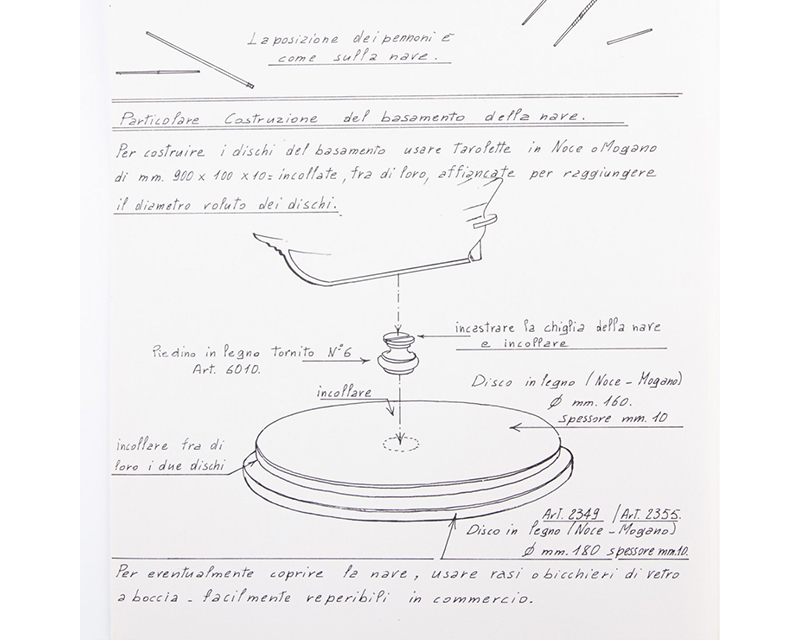 La posizione dei pennoni è
come sulla nave.
Particolare Costruzione del basamento della nave.
Per costruire i dischi del basamento usare tavolette in Noce o Mogano
di mm. 900 x 100 x 10= incollate, fra di loro, affiancate per raggiungere
il diametro voluto dei dischi.
incastrare la chiglia della nave
e incollare
Piedino in legno tornito N° 6
Art. 6010.
incollare
Disco in legno (Noce - Mogano)
Ø mm. 160.
spessore mm. 10
incollare fra di
loro i due dischi
Art. 2349 / Art. 2355.
Disco in legno (Noce - Mogano)
Ø mm. 180 spessore mm. 10.
Per eventualmente coprire la nave, usare vasi o bicchieri di vetro
a boccia - facilmente reperibili in commercio.